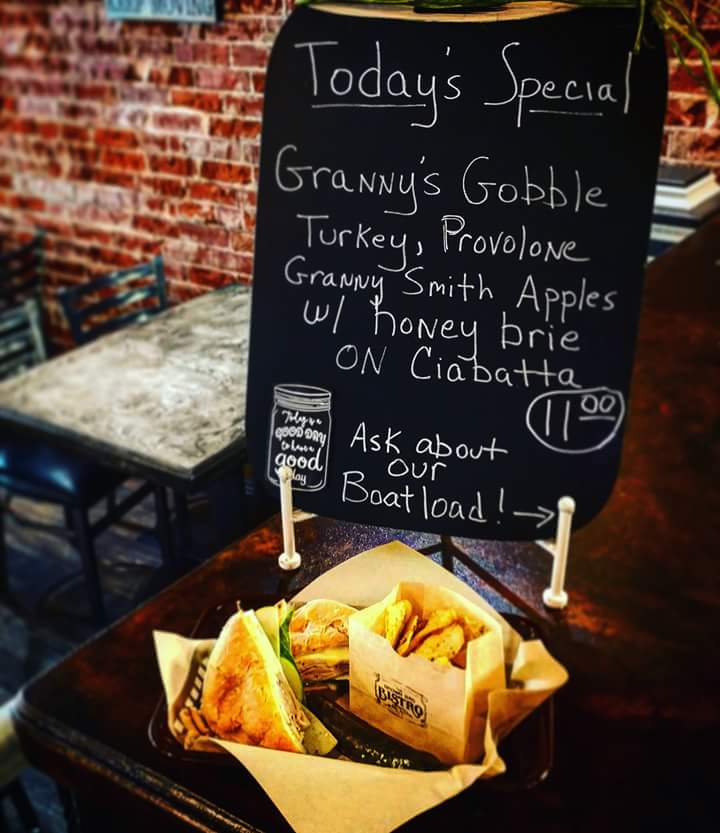 KEEP MOVING
Today's Special
Granny's Gobble
Turkey, Provolone
Granny Smith Apples
w/ honey brie
ON Ciabatta
11 00
Today is a
GOOD DAY
to have a
good
day
Ask about
our
Boatload! →
BISTRO